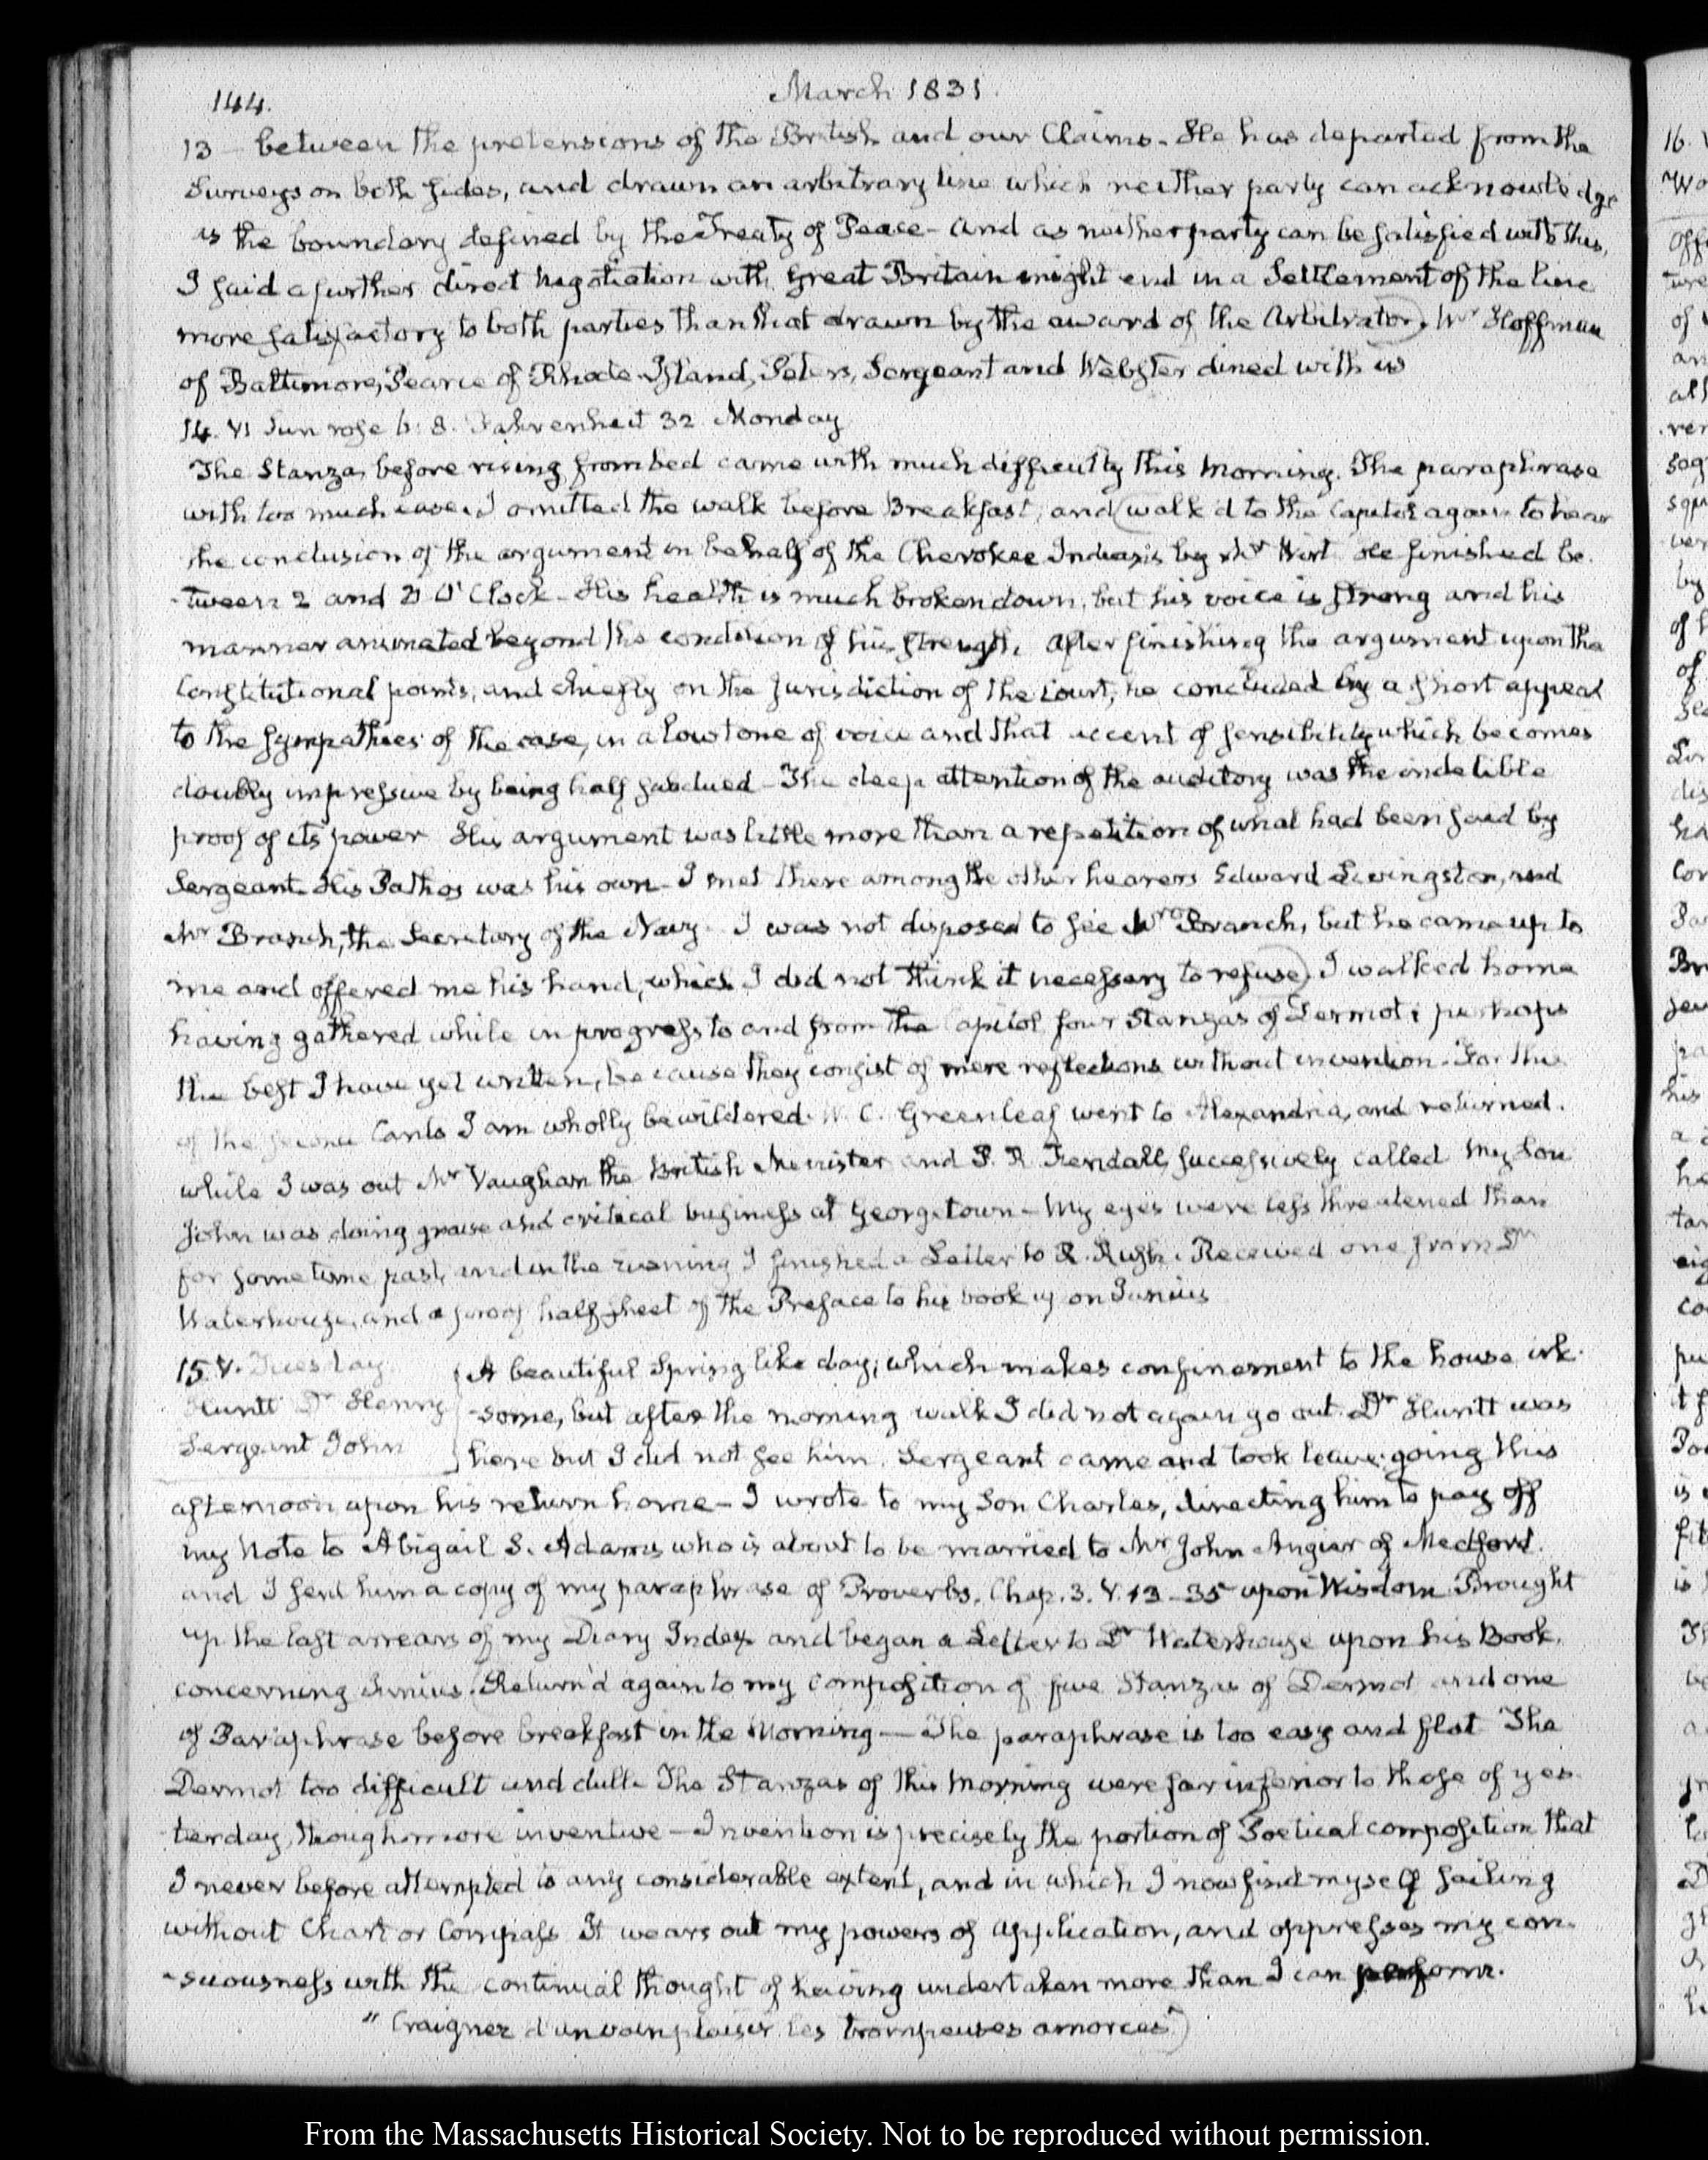 144.
March 1831.
13 between the pretensions of the British and our Claims. He has departed from the
Surveys on both sides, and drawn an arbitrary line which neither party can acknowledge
as the boundary defined by the Treaty of Peace - And as neither party can be satisfied with this,
I said a further direct negotiation with Great Britain might end in a Settlement of the line
more satisfactory to both parties than that drawn by the award of the Arbitrator. Mr Hoffman
of Baltimore, Pearce of Rhode-Island, Peters, Sergeant and Webster dined with us
14. VI Sun rose 6: 8. Fahrenheit 32 Monday
The Stanza, before rising from bed came with much difficulty this Morning. The paraphrase
with too much ease. I omitted the walk before Breakfast, and walk'd to the Capitol again to hear
the conclusion of the argument in behalf of the Cherokee Indians by Mr Wirt He finished be-
-tween 2 and 3 O'Clock - His health is much broken down, but his voice is strong and his
manner animated beyond the condition of his strength. After finishing the argument upon the
Constitutional points, and chiefly on the jurisdiction of the Court, he concluded by a short appeal
to the sympathies of the case, in a low tone of voice and that accent of sensibility which becomes
doubly impressive by being half subdued - The deep attention of the auditory was the indelible
proof of its power His argument was little more than a repetition of what had been said by
Sergeant. His Pathos was his own - I met there among the other hearers Edward Livingston, and
Mr Branch, the Secretary of the Navy. I was not disposed to see Mr Branch, but he came up to
me and offered me his hand, which I did not think it necessary to refuse. I walked home
having gathered while in progress to and from the Capitol four Stanzas of Dermot; perhaps
the best I have yet written, because they consist of mere reflections without invention. For the
of the second Canto I am wholly bewildered. W. C. Greenleaf went to Alexandria, and returned.
while I was out Mr Vaughan the British Minister and P. R. Fendall, successively called My Son
John was doing grave and critical business at Georgetown - My eyes were less threatened than
for some time past, and in the evening I finished a Letter to R. Rush. Received one from Dr
Waterhouse, and a proof half sheet of the Preface to his book upon Junius
15. V. Tuesday
Huntt Dr Henry
Sergeant John
A beautiful Spring like day; which makes confinement to the house irk-
-some, but after the morning walk I did not again go out. Dr Huntt was
here but I did not see him. Sergeant came and took leave; going this
afternoon upon his return home - I wrote to my Son Charles, directing him to pay off
my Note to Abigail S. Adams who is about to be married to Mr John Angier of Medford.
and I send him a copy of my paraphrase of Proverbs. Chap. 3. V. 13-35 upon Wisdom Brought
up the last arrears of my Diary Index and began a Letter to Dr Waterhouse upon his Book,
concerning Junius. Return'd again to my composition of five Stanzas of Dermot and one
of Paraphrase before breakfast in the Morning - The paraphrase is too easy and flat The
Dermot too difficult and dull. The Stanzas of this Morning were far inferior to those of yes-
-terday, though more inventive - Invention is precisely the portion of Poetical composition that
I never before attempted to any considerable extent, and in which I now find myself sailing
without Chart or Compass It wears out my powers of application, and oppresses my con-
-sciousness with the continual thought of having undertaken more than I can perform.
"Craignez d'un vain plaisir les trompeuses amorces"
From the Massachusetts Historical Society. Not to be reproduced without permission.